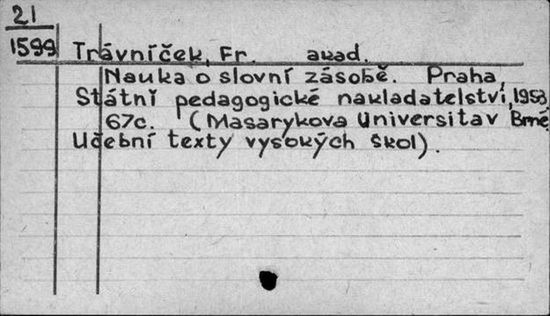 21
1599 Trávníček, Fr. akad.
Nauka o slovní zásobě. Praha,
Státní pedagogické nakladatelství, 1958
67c. (Masarykova Universita v Brně
Učební texty vysokých škol).